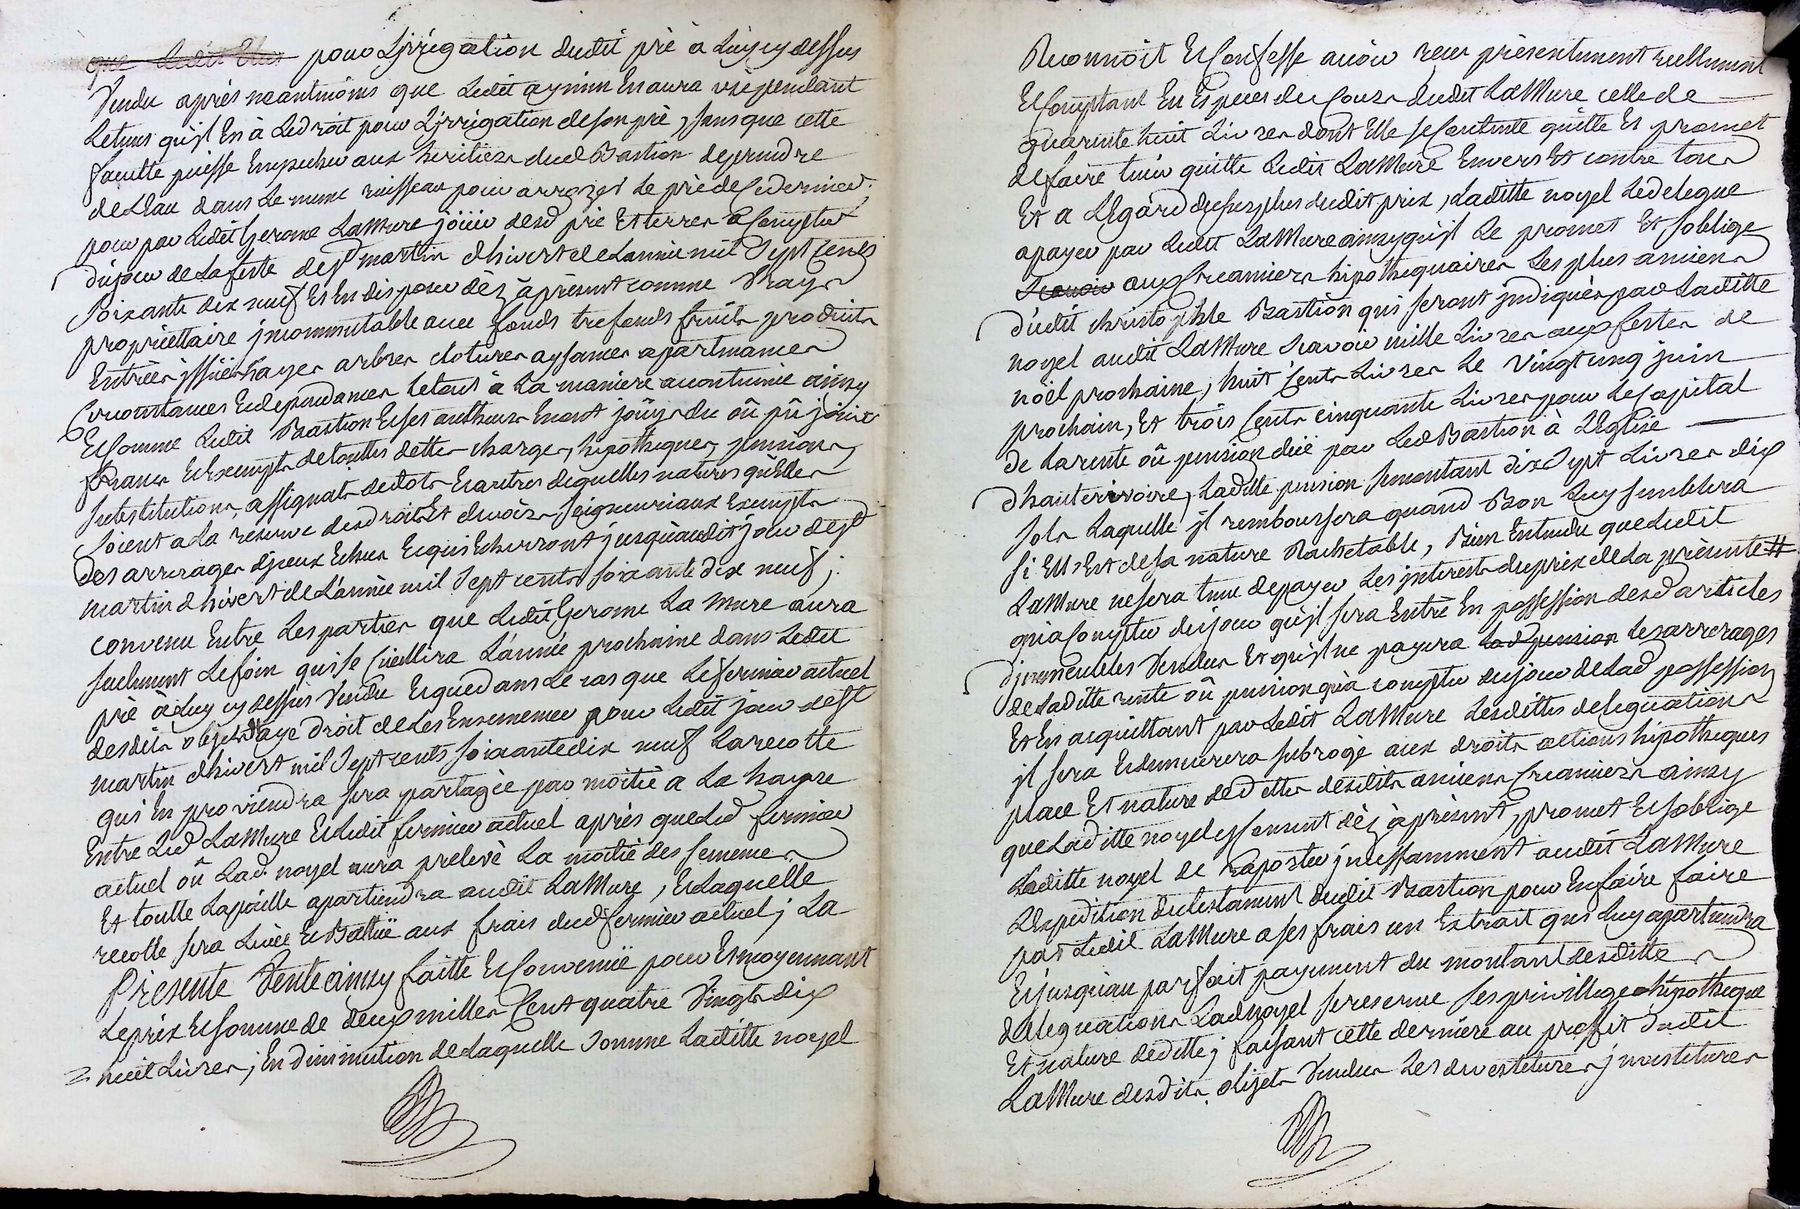 que ledit Elus pour Lirrigation dudit pré à Luy cy dessus
Vendu après néantmoins que Ledit aymin En aura usé pendant
Le tems qu'jl En à Le droit pour Lirrigation de son pré, sans que cette
faculté puisse Empecher aux heritiers dud Bastion de prendre
de Leau dans Le meme ruisseau pour arrozer Le pré de Ce dernier.
pour par Ledit Gerome LaMure joüir desd pré Et terres a Compter
du jour de La feste de st martin d'hivert de Lannée mil Sept Cents
Soixante dix neuf Et En disposer déz à présent comme Vray
propriettaire jncommutable avec fonds trefonds fruits produits
Entrées jssües hayes arbres clotures aysances apartenances
Circonstances Et dependances le tout à La maniere accoutumée ainsy
Et Comme Ledit Bastion Et ses autheurs En ont joüy dû oû pû joüir
francs Et Exempts de touttes dettes charges, hipotheques, pensions,
substitutions, assignats de dots Et autres de quelles natures qu'Elles
soient a La reserve des droits Et devoirs seigneuriaux Exempts
des arrerages d'jceux Echus Et qui Echerront jusqu'audit jour de st
martin d'hivert de L'année mil Sept cents soixante dix neuf;
convenu Entre Les parties que Ledit Gerome La Mure aura
seulement Le foin qui se Cueillira L'année prochaine dans Ledit
pré à Luy cy dessus Vendu Et que dans Le cas que Le fermier actuel
desdits objets aye droit de Les Ensemencer pour Ledit jour de st
martin d'hivert mil Sept cents soixante dix neuf La recolte
qui En proviendra sera partagée par moitié a La
Entre Led LaMure Et Ledit fermier actuel après que Led fermier
actuel oû Lad. noyel aura prelevé La moitié des semences
Et toutte La paille apartiendra audit LaMure, Et Laquelle
recolte sera Et Battüe aux frais dud fermier actuel; La
Presente Vente ainsy faitte Et Convenüe pour Et moyennant
Le prix Et somme de deux milles Cent quatre Vingts dix
huit Livres; En diminution de Laquelle Somme Laditte noyel
Reconnoit Et Confesse avoir recu présentement reellement
Et Comptant En Especes de Cours dudit LaMure celle de
quarante huit Livres dont Elle se Contente quitte Et promet
de faire tenir quitte Ledit LaMure Envers Et contre tous
Et a L'Egard du surplus dudit prix, Laditte noyel Le delegue
a payer par Ledit LaMure ainsy qu'jl Le promet Et s'oblige
Scavoir aux Creanciers hipothequaires Les plus anciens
dudit christophle Bastion qui seront jndiqués par Laditte
noyel audit LaMure Scavoir mille Livres aux festes de
noël prochaine, huit Cents Livres Le Vingt cinq juin
prochain, Et trois Cents cinquante Livres pour Le Capital
de La rente oû pension düe par Led Bastion à L'Eglise
d'hauterivoire, Laditte pension se montant dix Sept Livres dix
sols Laquelle jl remboursera quand Bon Luy semblera
si Elle Est de sa nature Rachetable, Bien Entendu que Ledit
LaMure ne sera tenu de payer Les jnterests du prix de La présente #
qu'a Compter du jour qu'jl sera Entré En possession desd articles
d'jmmeubles Vendus Et qu'jl ne payera Lad pension Les arrerages
de Laditte rente oû pension qu'a compter du jour de Lad possession
Et En acquittant par Ledit LaMure Lesdittes delegations
jl sera Et demeurera subrogé aux droits actions hipotheques
place Et nature de dettes desdits anciens Creanciers ainsy
que Laditte noyel y Consent déz à présent, promet Et s'oblige
Laditte noyel de raporter jncessamment audit LaMure
L'Expedition du testament dudit Bastion pour En faire faire
par Ledit LaMure a ses frais un Extrait qui Luy apartiendra
Et jusqu'au parfait payement du montant desdittes
delegations Lad noyel se reserve ses privilleges hipotheque
Et nature de dette; faisant cette derniere au proffit dudit
LaMure desdits objets Vendus Les devestitures jnvestitures